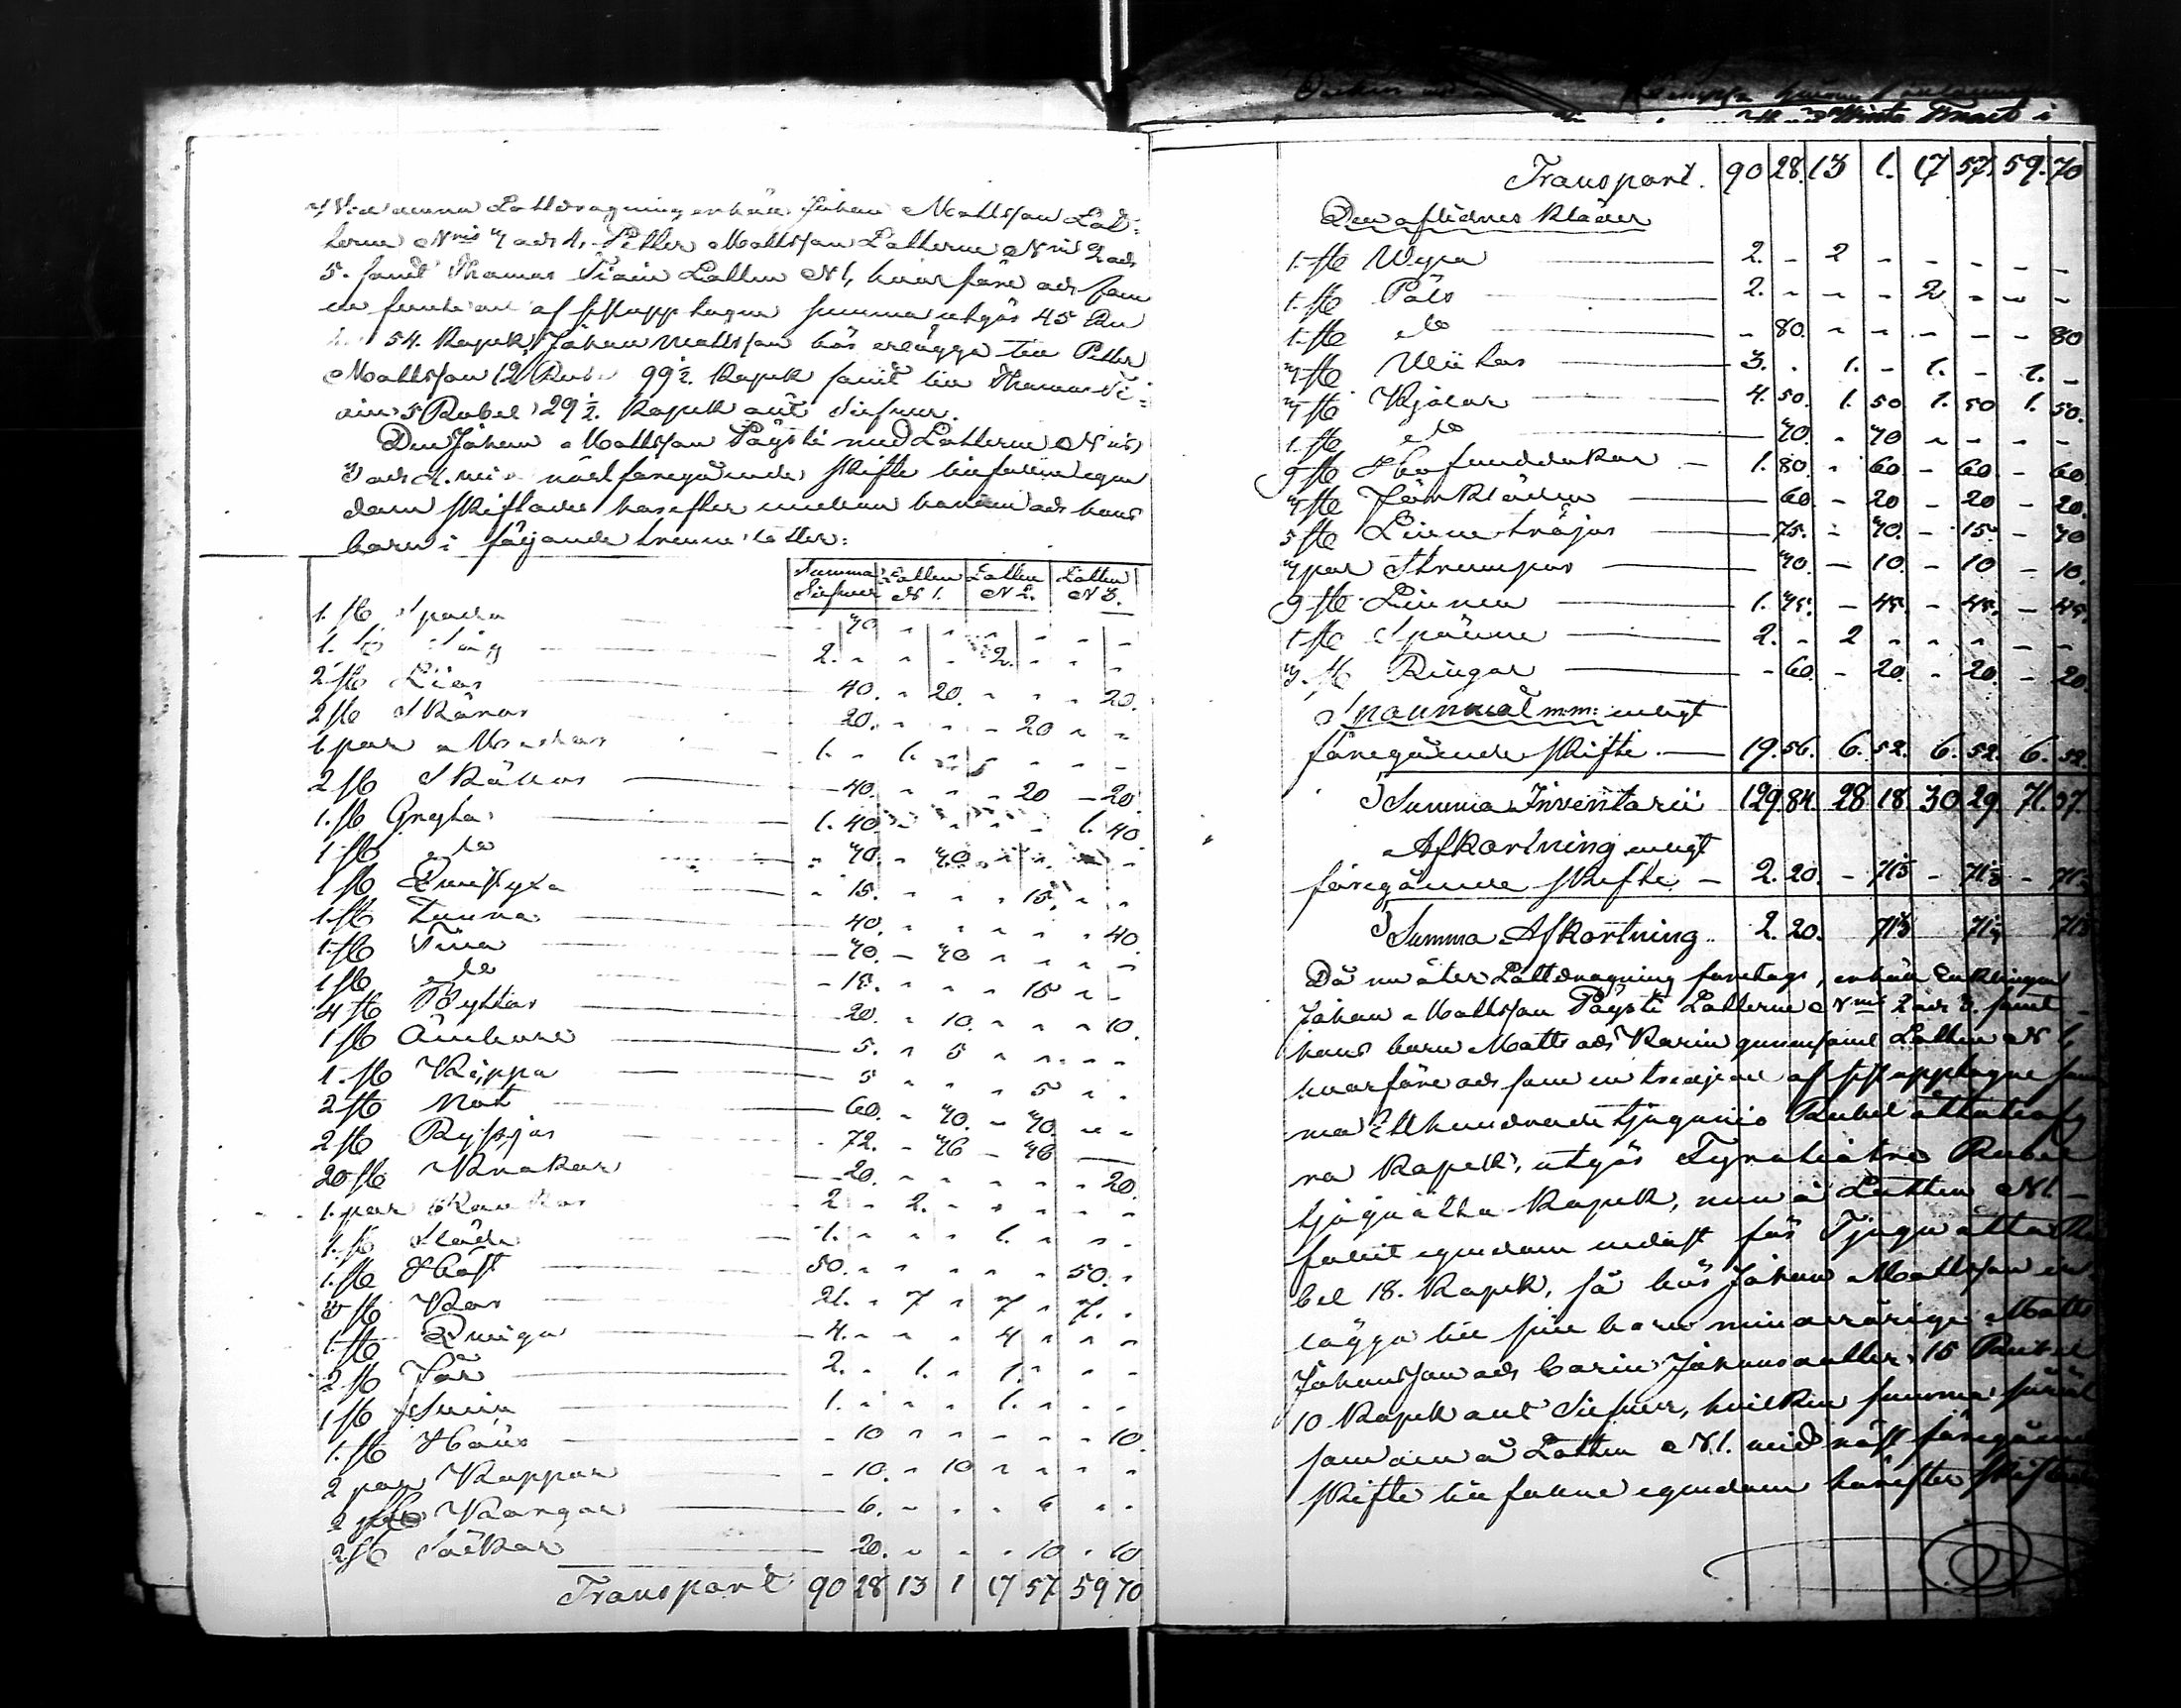 Vid denna Lottdragning erhöll Johan Mattsson Lot-
terne N:ris 3 och 4, Petter Mattsson Lotterne N:ris 2 och
5. samt Thomas Tiain Lotten N 1, hvarföre och som
en femte del af upptagne summa utgör 45 Ru
54. Kopek, Johan Mattsson bör erlägga till Petter
Mattsson 12 Rubel 99½. Kopek samt till Thomas Ti-
ain 5 Rubel 29½. Kopek allt Silfver.
Den Johan Mattsson Päysti med Lotterne N:ris
3 och 4. vid näst föregående skifte tillfallne egen
dom skiftades härefter emellan honom och hans
barn i följande trenne lotter:
Summa Silfver Lotten N 1. Lotten N 2. Lotten N 3.
1. st Spada 30
1. st Såg 2. - - - 2. - - -
2 st Liar 40. - 20. - - - 20.
2 st Skäror 20. - - - 20 - -
1 par 1. - 1. - - - - -
2 st Skållor - 40. - - - 20 - 20.
1. st Gryta 1. 40 - - - - 1. 40
1 st do - 30. - 30 - - - -
1 st - 15. - - - 15. - -
1. st Tunna 40. - - - - - 40
1. st Tina - 30. - 30 - - - -
1 st do - 15. - - - 15 - -
4 st Byttor 20. - 10. - - - 10.
1 st Ämbare 5. - 5 - - - -
1. st Kappa 5 - - - 5 - -
2 st Not 60. - 30. - 30. - -
2 st Ryssjor 72. - 36 - 36
20 st Krokar - 20. - - - - - 20.
1. par 2 - 2. - - - - -
1. st Släde 1. - - - 1. - - -
1. st Häst 50. - - - - - 50. -
3 st Kor 21. - 7 - 7 - 7. -
1. st Quiga 4. - - - 4 - - -
2 st Får 2. - 1. - 1. - - -
1 st Svin 1. - - - 1. - - -
1. st Höns - 10 - - - - - 10.
2 par Kappor - 10. - 10 - - - -
2 6. - - - 6 - -
2 st Säckar 20. - - - 10 - 10
Transport 90 28 13 1 17 57 59 70
Transport. 90 28. 13 1. 17 57. 59. 70
Den aflidnes kläder
1. st Wepa 2. - 2 - - - - -
1. st Päls 2. - - - 2 - - -
1. st do - 80. - - - - - 80
3 st 3. - 1. - 1. - 1. -
3 st Kjolar 4. 50. 1. 50 1. 50 1. 50.
1. st do 30. - 30 - - - -
9 st Hufvuddukar 1. 80. - 60 - 60. - 60.
3 st Förkläden 60. - 20 - 20 - 20.
5 st Linne tröjor 75. - 30. - 15. - 30
3 par Strumpor 30. - 10. - 10 - 10.
9 st Linnen 1. 35. - 45. - 45. - 45.
1 st Spänne 2. - 2 - - - - -
3. st Ringar - 60. - 20. - 20. - 20.
Spannmål m.m. enligt
föregående skifte 19. 56. 6. 52. 6. 52. 6. 52.
Summa Inventarii 129. 84. 28 18. 30 29. 71. 37.
Afkortning enligt
föregående skifte - 2. 20. - 73⅓ - 73⅓ - 73⅓
Summa Afkortning.. 2. 20. 73⅓ 73⅓ 73⅓
Då nu åter Lottdragning företogs, erhöll Enklingen
Johan Mattsson Päysti Lotterne N:ris 2 och 3. samt
hans barn Matts och Karin gemensamt Lotten N 1,
hvarföre och som en tredjedel af upptagne sum
ma Etthundrade tjugunio Rubel åttatiofy
ra Kopek, utgör Fyratiotre Rubel
tjuguåtta Kopek, men å Lotten N 1
fallit egendom endast för Tjuguåtta Ru
bel 18. Kopek, så bör Johan Mattsson in
lägga till sine barn minderårige Matts
Johansson och Carin Johansdotter 15 Rubel
10 Kopek allt Silfver, hvilken summa såväl
som den å Lotten N 1. vid näst föregående
skifte tillfallne egendom härefter skiftades